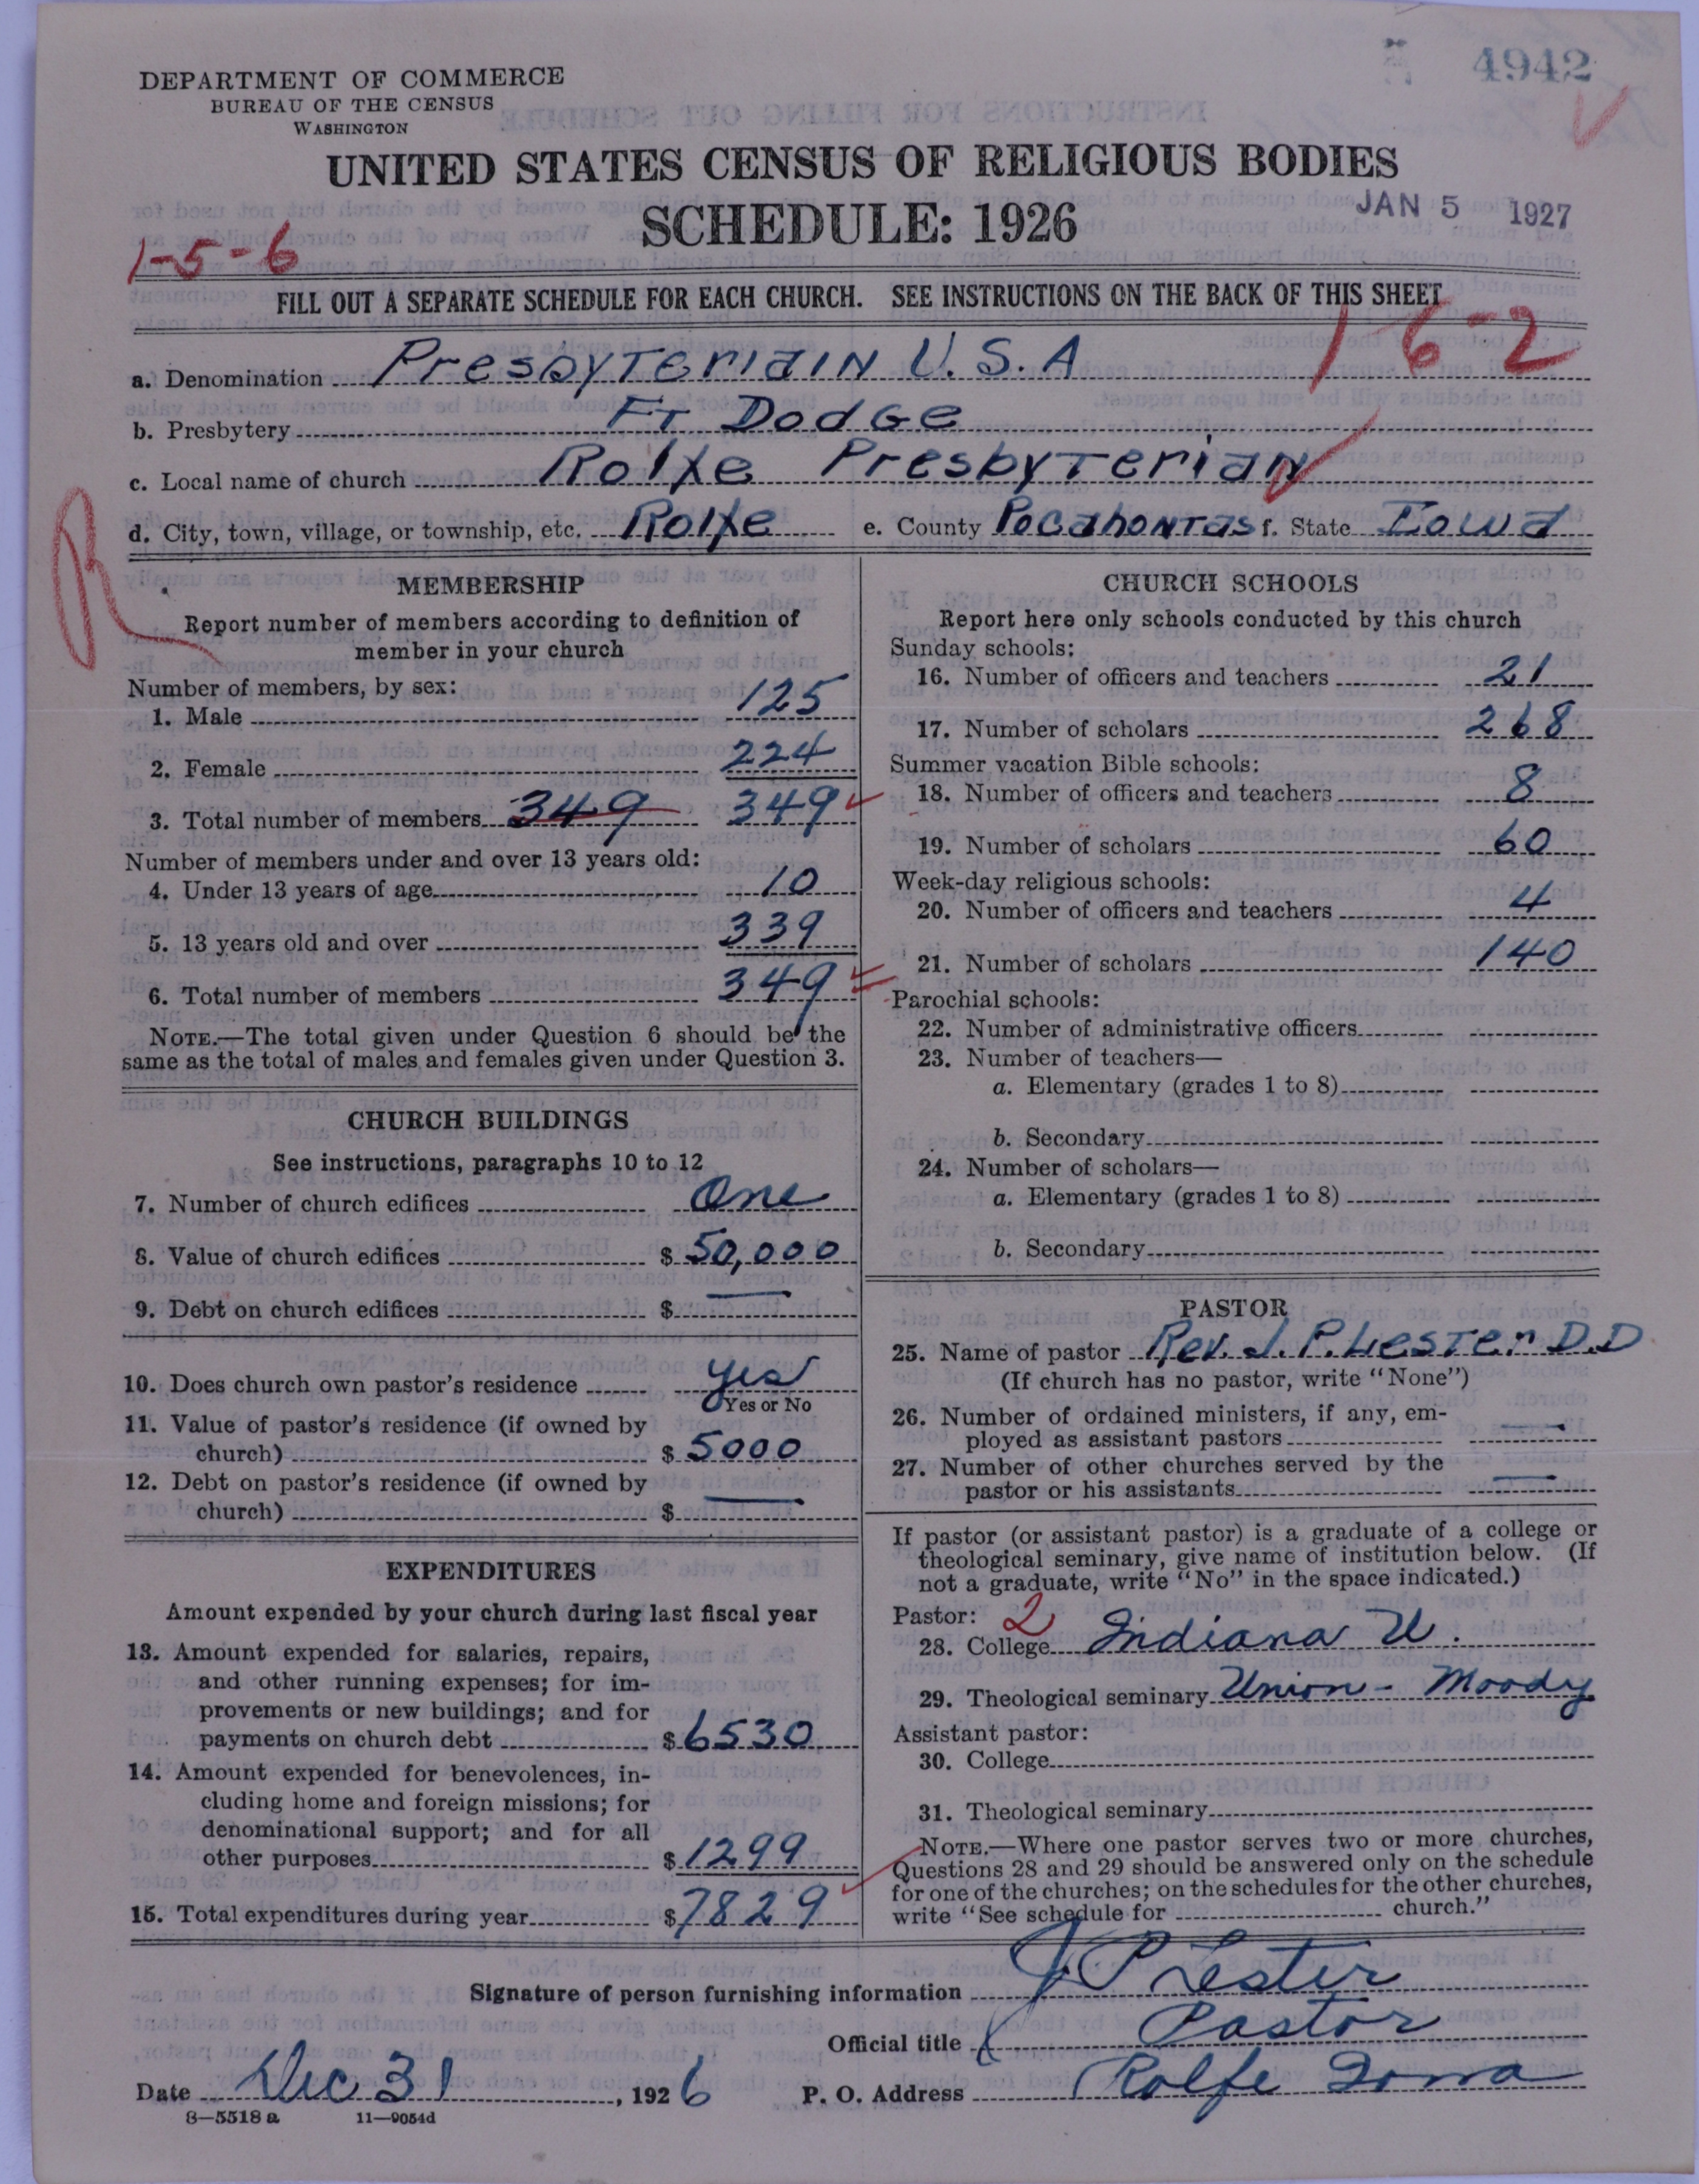 4942
DEPARTMENT OF COMMERCE
BUREAU OF THE CENSUS
WASHINGTON
UNITED STATES CENSUS OF RELIGIOUS BODIES
SCHEDULE: 1926
JAN 5 1927
1-5-6
FILL OUT A SEPARATE SCHEDULE FOR EACH CHURCH. SEE INSTRUCTIONS ON THE BACK OF THIS SHEET
1-6-2
a. Denomination Presbyterian U.S.A
b. Presbytery Ft Dodge
c. Local name of church Rolfe Presbyterian
d. City, town, village, or township, etc. Rolfe e. County Pocahontas f. State Iowa
R
MEMBERSHIP
Report number of members according to definition of
member in your church
Number of members, by sex:
1. Male 125
2. Female 224
3. Total number of members 349 349
Number of members under and over 13 years old:
4. Under 13 years of age 10
5. 13 years old and over 339
6. Total number of members 349
NOTE.—The total given under Question 6 should be the
same as the total of males and females given under Question 3.
CHURCH BUILDINGS
See instructions, paragraphs 10 to 12
7. Number of church edifices One
8. Value of church edifices $ 50,000
9. Debt on church edifices $ —
10. Does church own pastor's residence yes
Yes or No
11. Value of pastor's residence (if owned by
church) $ 5000
12. Debt on pastor's residence (if owned by
church) $ —
EXPENDITURES
Amount expended by your church during last fiscal year
13. Amount expended for salaries, repairs,
and other running expenses; for im-
provements or new buildings; and for
payments on church debt $ 6530
14. Amount expended for benevolences, in-
cluding home and foreign missions; for
denominational support; and for all
other purposes $ 1299
15. Total expenditures during year $ 7829
CHURCH SCHOOLS
Report here only schools conducted by this church
Sunday schools:
16. Number of officers and teachers 21
17. Number of scholars 268
Summer vacation Bible schools:
18. Number of officers and teachers 8
19. Number of scholars 60
Week-day religious schools:
20. Number of officers and teachers 4
21. Number of scholars 140
Parochial schools:
22. Number of administrative officers
23. Number of teachers—
a. Elementary (grades 1 to 8)
b. Secondary
24. Number of scholars—
a. Elementary (grades 1 to 8)
b. Secondary
PASTOR
25. Name of pastor Rev. J. P. Lester D.D
(If church has no pastor, write "None")
26. Number of ordained ministers, if any, em-
ployed as assistant pastors —
27. Number of other churches served by the
pastor or his assistants —
If pastor (or assistant pastor) is a graduate of a college or
theological seminary, give name of institution below. (If
not a graduate, write "No" in the space indicated.)
Pastor: 2
28. College Indiana U.
29. Theological seminary Union - Moody
Assistant pastor:
30. College
31. Theological seminary
NOTE.—Where one pastor serves two or more churches,
Questions 28 and 29 should be answered only on the schedule
for one of the churches; on the schedules for the other churches,
write "See schedule for church."
Signature of person furnishing information J P Lester
Official title Pastor
Date Dec 31, 1926 P. O. Address Rolfe Iowa
8—5518 a 11—9054d